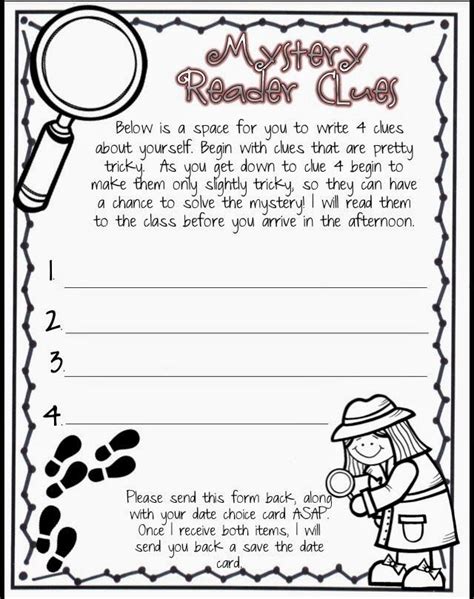 Mystery
Reader Clues
Below is a space for you to write 4 clues
about yourself. Begin with clues that are pretty
tricky. As you get down to clue 4 begin to
make them only slightly tricky, so they can have
a chance to solve the mystery! I will read them
to the class before you arrive in the afternoon.
1.
2.
3.
4.
Please send this form back, along
with your date choice card ASAP.
Once I receive both items, I will
send you back a save the date
card.